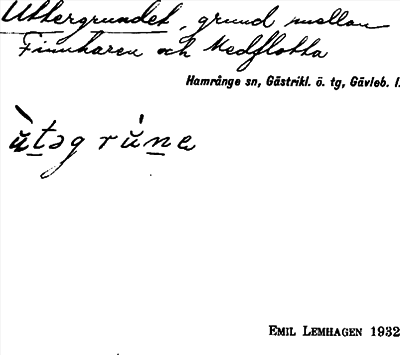 Uttergrundet, grund mellan
Finnharen och Medflotta
Hamrånge sn, Gästrikl. ö. tg, Gävleb. l.
ùtəg rùne
EMIL LEMHAGEN 1932